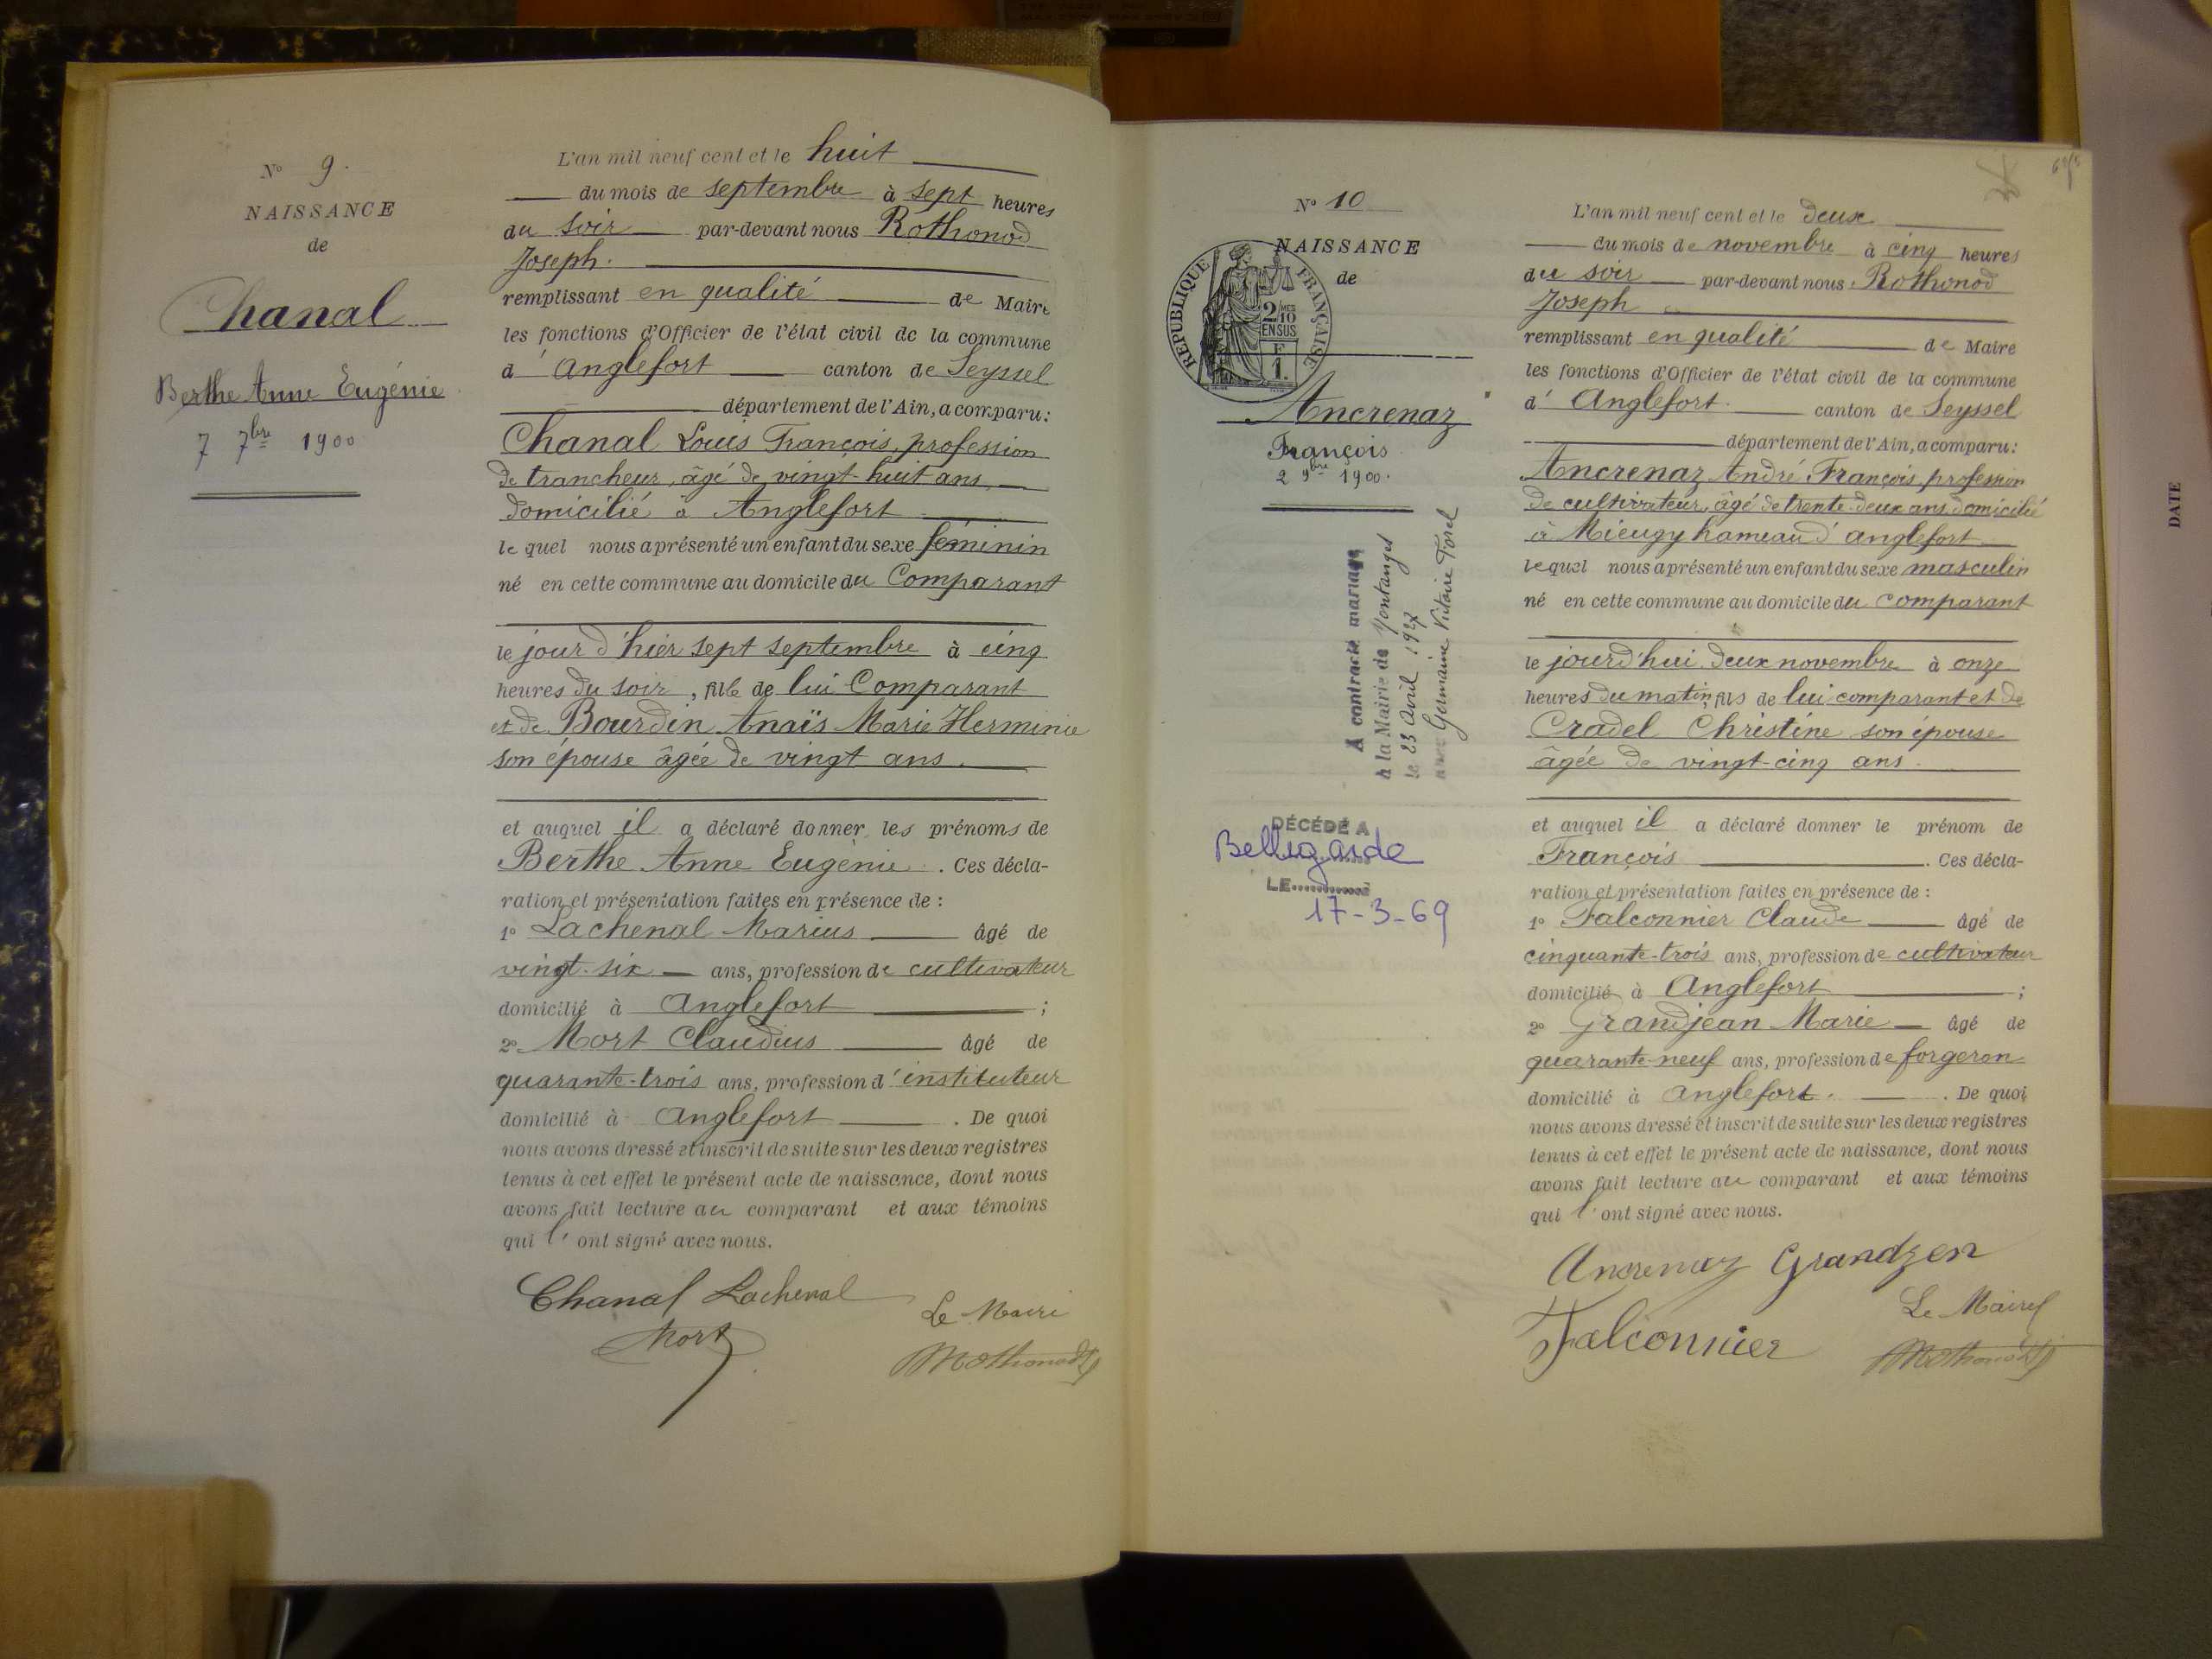 N° 9.
NAISSANCE
de
Chanal
Berthe Anne Eugénie
7 7bre 1900
L'an mil neuf cent et le huit
du mois de septembre à sept heures
du soir par-devant nous Rothonod
Joseph.
remplissant en qualité de Maire
les fonctions d'Officier de l'état civil de la commune
d' Anglefort canton de Seyssel
département de l'Ain, a comparu:
Chanal Louis François, profession
de trancheur, âgé de vingt-huit ans
domicilié à Anglefort
le quel nous a présenté un enfant du sexe féminin
né en cette commune au domicile du Comparant
le jour d'hier sept septembre à cinq
heures du soir, fille de lui Comparant
et de Bourdin Anaïs Marie Herminie
son épouse âgée de vingt ans.
et auquel il a déclaré donner les prénoms de
Berthe Anne Eugénie. Ces décla-
ration et présentation faites en présence de :
1° Lachenal Marius âgé de
vingt-six ans, profession de cultivateur
domicilié à Anglefort ;
2° Mort Claudius âgé de
quarante-trois ans, profession d'instituteur
domicilié à Anglefort. De quoi
nous avons dressé et inscrit de suite sur les deux registres
tenus à cet effet le présent acte de naissance, dont nous
avons fait lecture au comparant et aux témoins
qui l' ont signé avec nous.
Chanal Lachenal
Le Maire
Mort
Rothonod
N° 10
NAISSANCE
de
RÉPUBLIQUE FRANÇAISE
2/10 MES
EN SUS
F
1.
Ancrenaz
François
2 9bre 1900.
A contracté mariage
à la Mairie de Montanges
le 23 avril 1927
avec Germaine Victoire Foral
DÉCÉDÉ A
Bellegarde
LE
17-3-69
L'an mil neuf cent et le deux
du mois de novembre à cinq heures
du soir par-devant nous Rothonod
Joseph
remplissant en qualité de Maire
les fonctions d'Officier de l'état civil de la commune
d' Anglefort. canton de Seyssel
département de l'Ain, a comparu:
Ancrenaz André François, profession
de cultivateur, âgé de trente-deux ans, domicilié
à Mieugy hameau d'anglefort
lequel nous a présenté un enfant du sexe masculin
né en cette commune au domicile du comparant
le jourd'hui deux novembre à onze
heures du matin, fils de lui comparant et de
Cradel Christine son épouse
âgée de vingt-cinq ans.
et auquel il a déclaré donner le prénom de
François. Ces décla-
ration et présentation faites en présence de :
1° Falconnier Claude âgé de
cinquante-trois ans, profession de cultivateur
domicilié à Anglefort ;
2° Grandjean Marie âgé de
quarante-neuf ans, profession de forgeron
domicilié à Anglefort. De quoi
nous avons dressé et inscrit de suite sur les deux registres
tenus à cet effet le présent acte de naissance, dont nous
avons fait lecture au comparant et aux témoins
qui l' ont signé avec nous.
Ancrenaz Grandzen
Le Maire
Falconnier
Rothonod
DATE